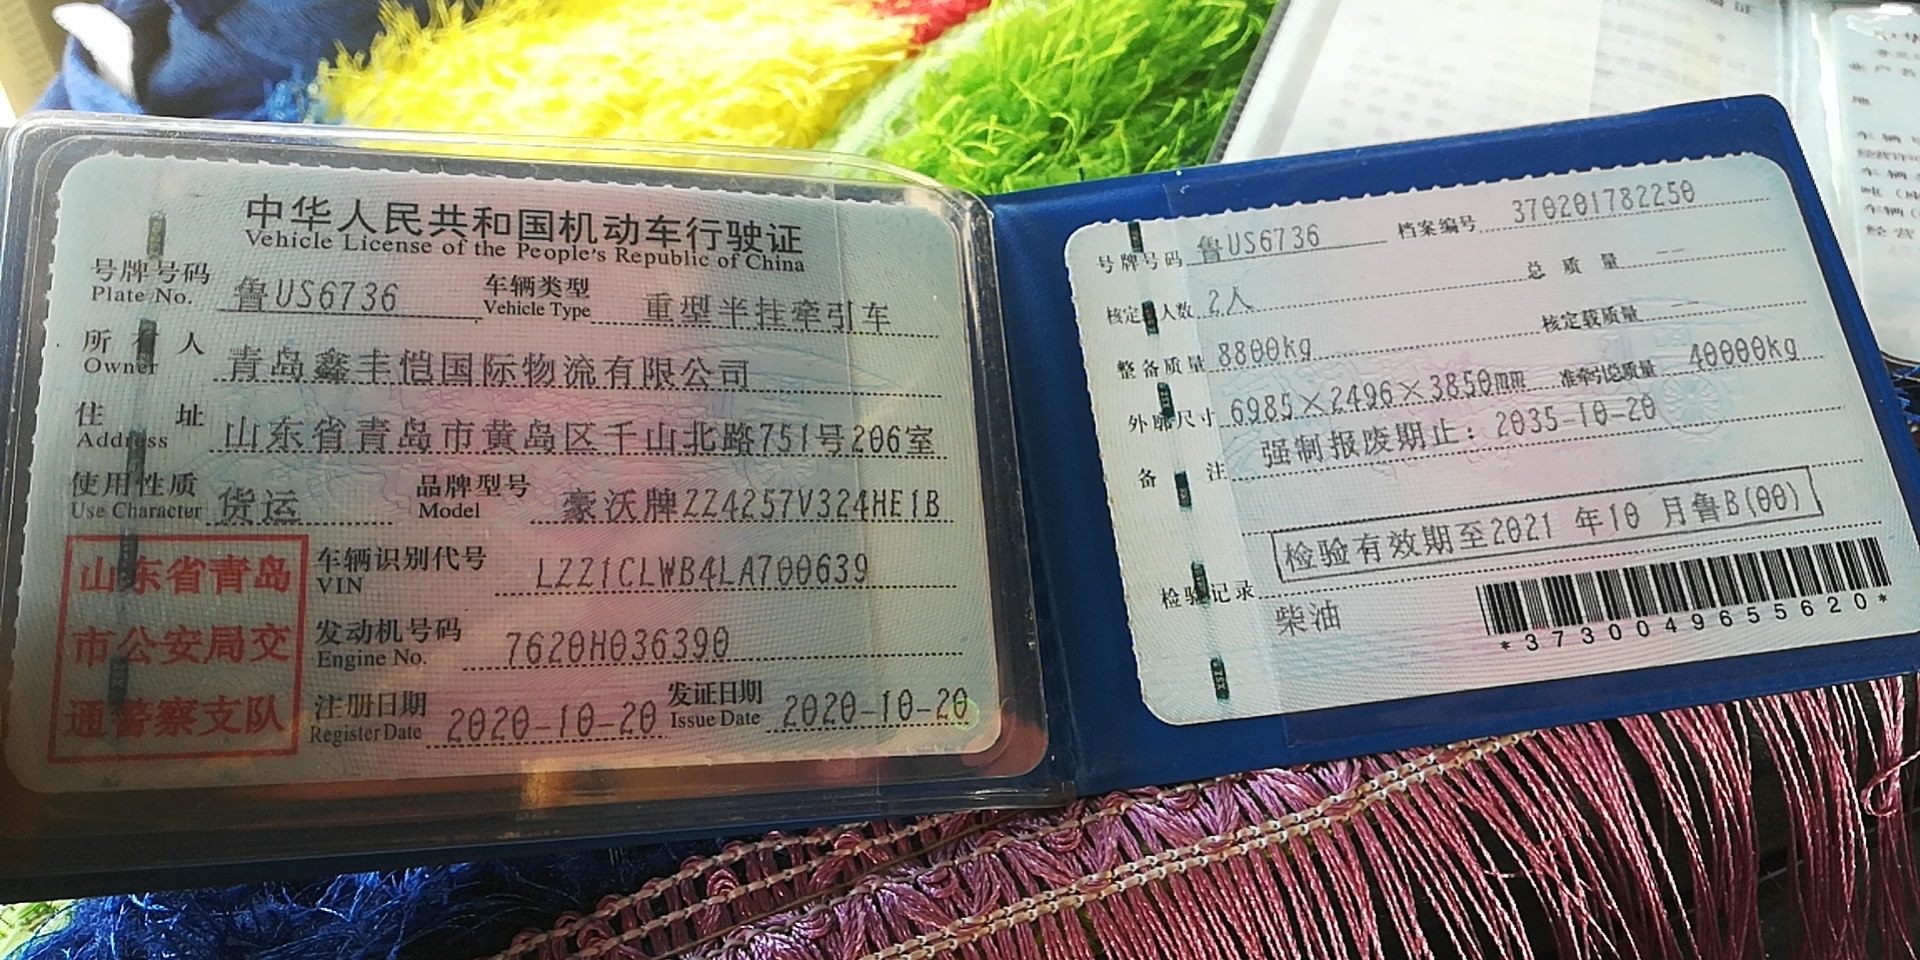 中华人民共和国机动车行驶证
Vehicle License of the People's Republic of China
号牌号码 鲁US6736 车辆类型 重型半挂牵引车
Plate No. Vehicle Type
所有人 青岛鑫丰恺国际物流有限公司
Owner
住址 山东省青岛市黄岛区千山北路751号206室
Address
使用性质 货运 品牌型号 豪沃牌ZZ4257V324HE1B
Use Character Model
山东省青岛
市公安局交
通警察支队
车辆识别代号 LZZ1CLWB4LA700639
VIN
发动机号码 7620H036390
Engine No.
注册日期 2020-10-20 发证日期 2020-10-20
Register Date Issue Date
号牌号码 鲁US6736 档案编号 370201782250
核定人数 2人 总质量 --
整备质量 8800kg 核定载质量
外廓尺寸 6985×2496×3850mm 准牵引总质量 40000kg
备注 强制报废期止：2035-10-20
检验有效期至2021 年10 月鲁B(00)
检验记录
柴油
*3730049655620*